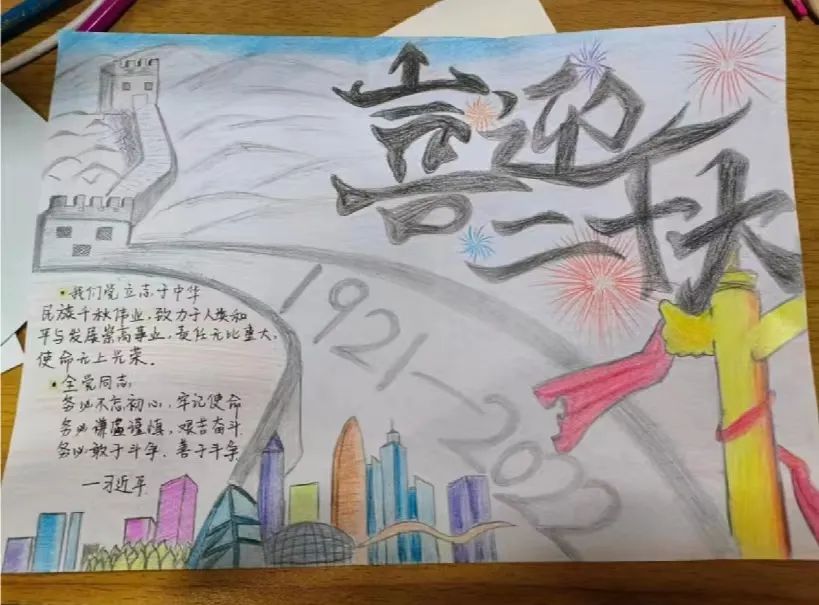 喜迎
二十大
1921—2022
·我们党立志于中华
民族千秋伟业,致力于人类和
平与发展崇高事业,责任无比重大,
使命无上光荣。
·全党同志
务必不忘初心,牢记使命
务必谦虚谨慎,艰苦奋斗
务必敢于斗争,善于斗争
—习近平